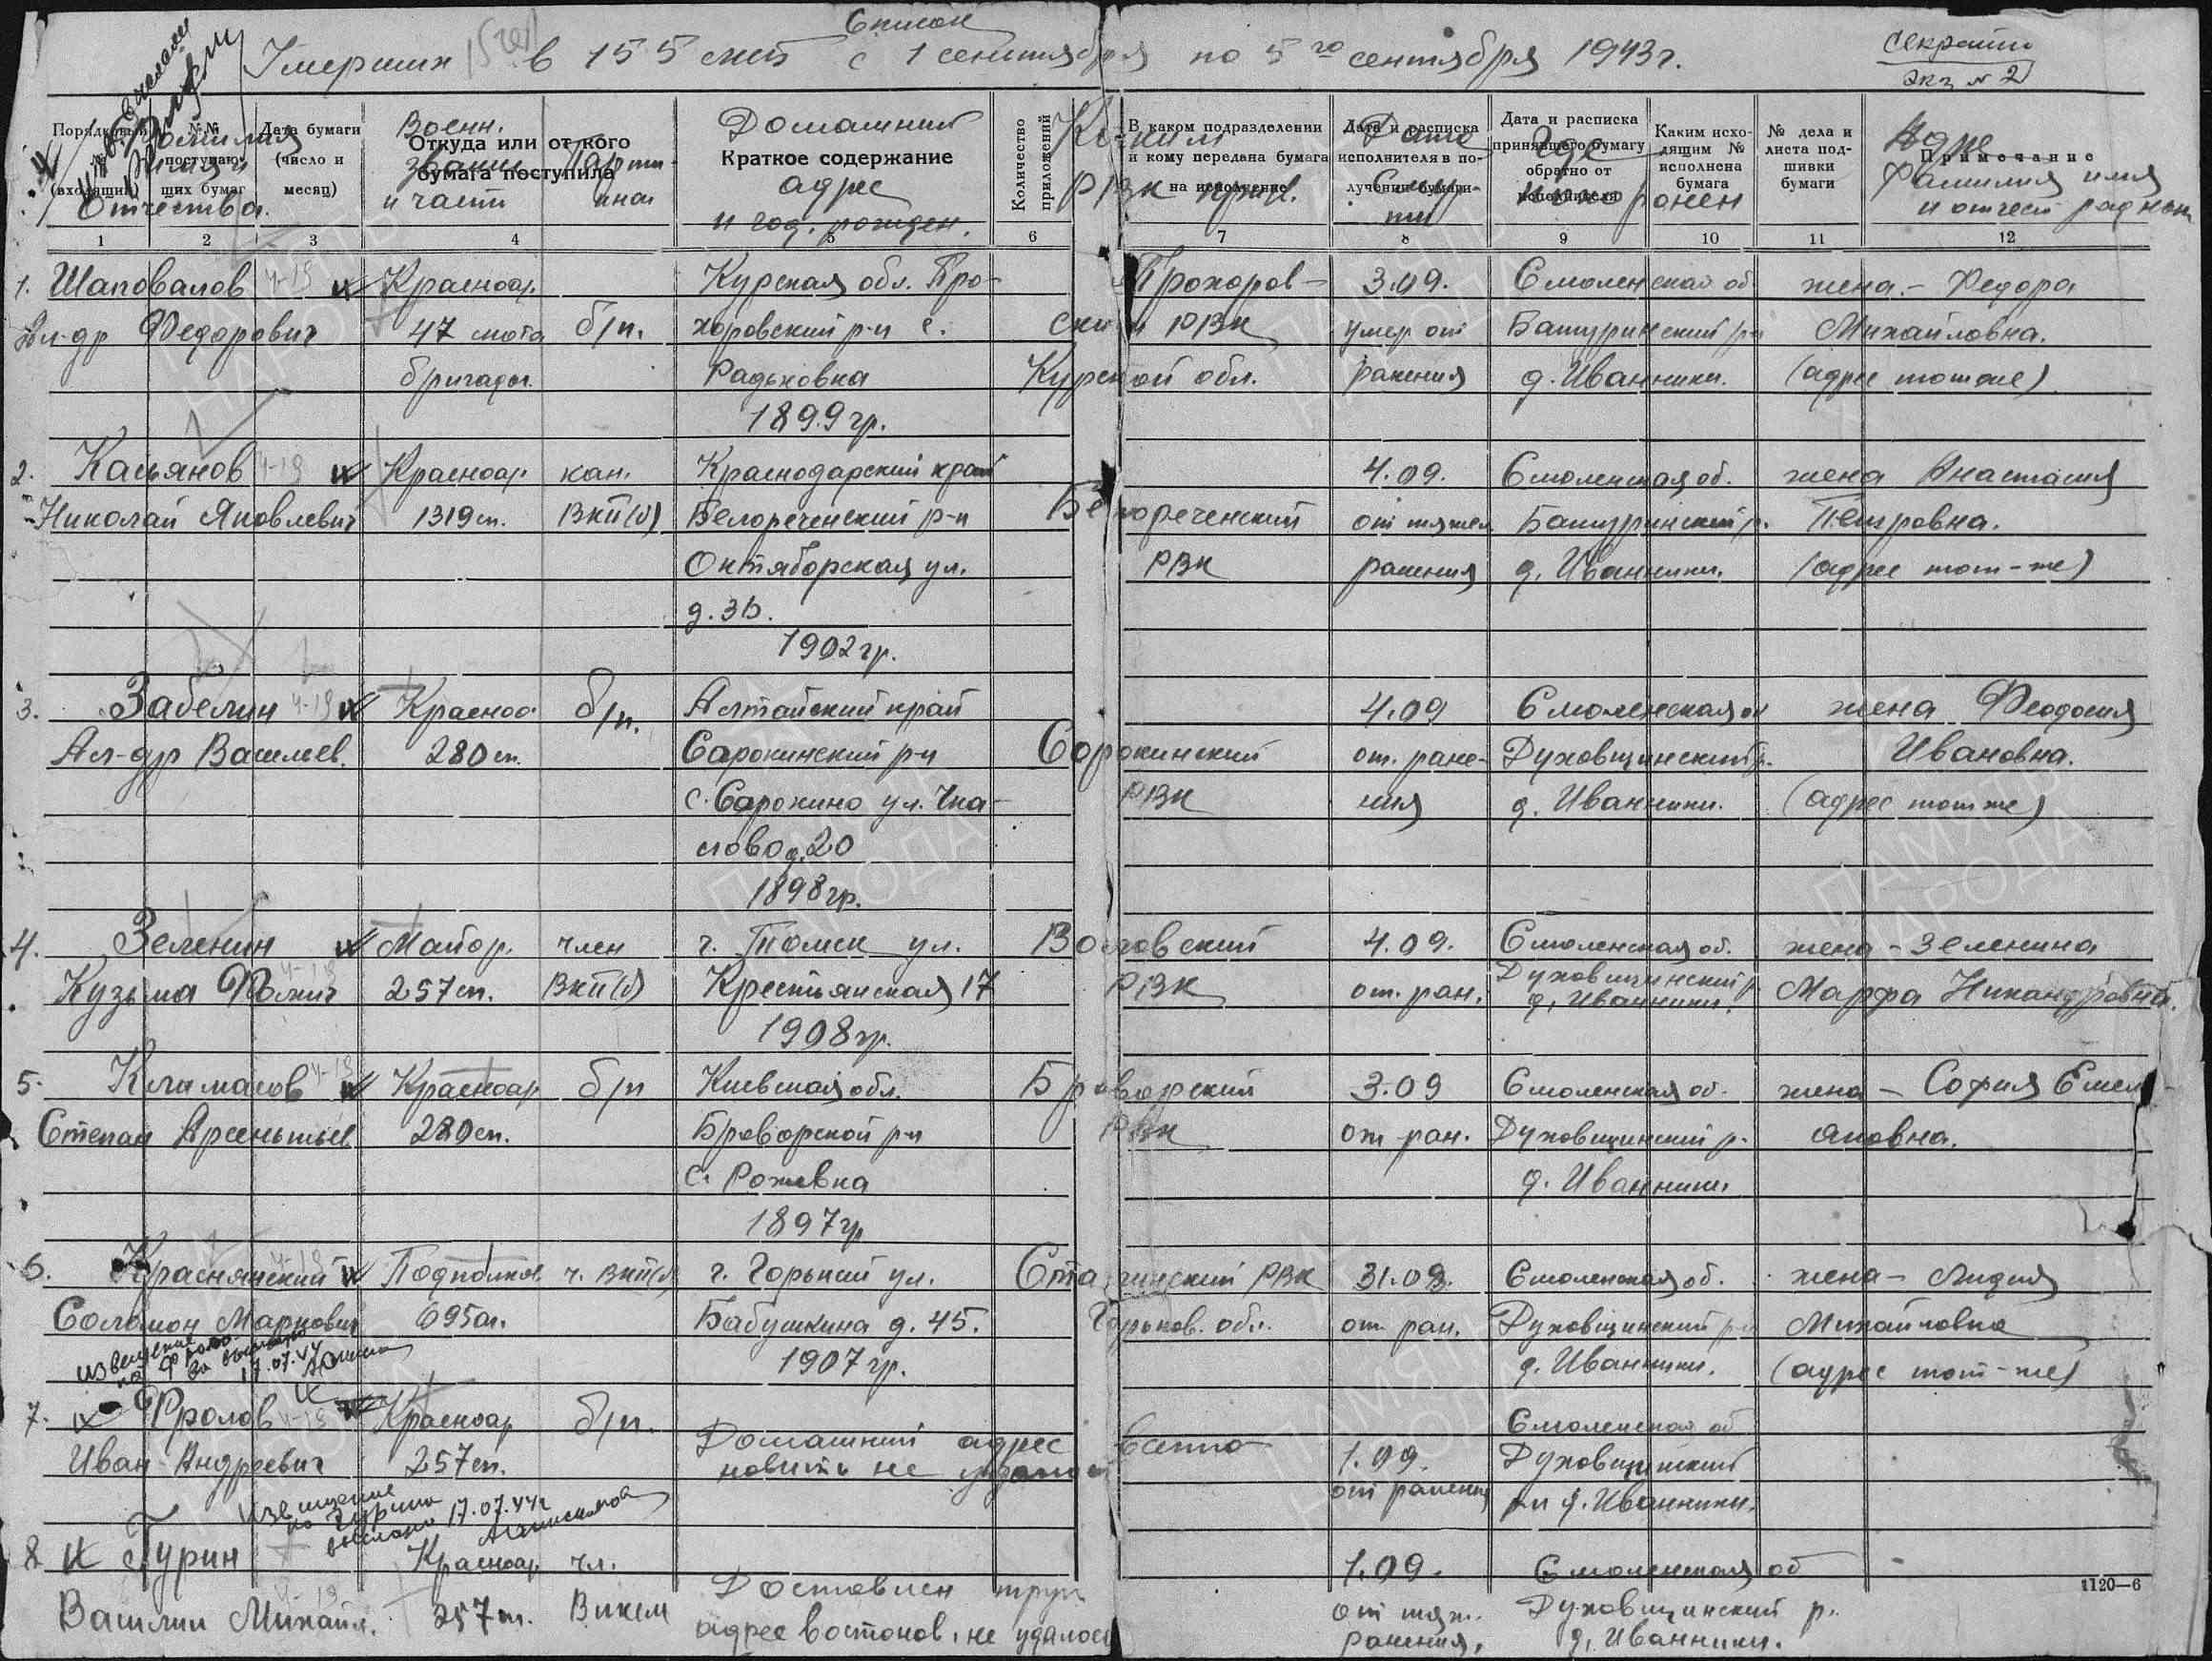 Список
Умерших 15 чел в 155 омсб с 1 сентября по 5го сентября 1943г.
Секретно
Экз № 2
Порядковый № (входящий)
№№ поступающих бумаг
Дата бумаги (число и месяц)
Откуда или от кого бумага поступила
Краткое содержание
Количество приложений
В каком подразделении и кому передана бумага на исполнение
Дата и расписка исполнителя в получении бумаги
Дата и расписка принявшего бумагу обратно от исполнителя
Каким исходящим № исполнена бумага
№ дела и листа подшивки бумаги
Примечание
Фамилия Имя и Отчества
Воен. звание и часть
Партийная
Домашний адрес и год. рожден.
Каким РВК призв.
Дата Смерти
Где похоронен
Адрес Фамилия имя и отчест родных
1 2 3 4 5 6 7 8 9 10 11 12
1. Шаповалов 4-19 Красноар. Курская обл. Про- Прохоров- 3.09. Смоленская об жена - Федора
Ал-др Федорович 47 мота б/п. хоровский р-н с. ский РВК умер от Батуринский р-н Михайловна.
бригады. Радьковка Курской обл. ранения д. Иванники. (адрес тот же)
1899 гр.
2. Касьянов 4-19 Красноар. кан. Краснодарский край 4.09. Смоленская об. жена Анастасия
Николай Яковлевич 1319 сп. ВКП(б) Белореченский р-н Белореченский от тяжел Батуринский р. Петровна.
Октяборская ул. РВК ранения д. Иванники. (адрес тот-же)
д. 36.
1902 гр.
3. Забелин 4-19 Красноа б/п. Алтайский край 4.09 Смоленская об жена Феодосия
Ал-др Васильев. 280 сп. Сарокинский р-н Сорокинский от. ране- Духовщинский р. Ивановна.
с. Сарокино ул. Чка- РВК ния д. Иванники. (адрес тот же)
лово д. 20
1898 гр.
4. Зеленин Майор. член г. Томск ул. 4.09. Смоленская об. жена - Зеленина
Кузьма 257 сп. ВКП(б) Крестьянская 17 РВК от. ран. Духовщинский р д. Иванники. Марфа Никандровна.
1908 гр.
5. 4-19 Красноар б/п Киевская обл. Броварский 3.09 Смоленская об. жена - София Емель-
Степан Арсентьев. 280 сп. Броворской р-н РВК от ран. Духовщинский р. яновна.
с. Рожевка д. Иванники.
1897 гр
6. Краснянский 4-19 Подполков. ч. ВКП(б) г. Горький ул. РВК 31.08. Смоленская об. жена - Лидия
Соломон Маркович 695 ап. Бабушкина д. 45. Горьков. обл. от ран. Духовщинский р-н Михайловна
1907 гр. д. Иванники. (адрес тот-же)
извещение на Фролова выслано 17.07.44
7. Фролов 4-19 Красноар б/п. Домашний адрес восста- Смоленская об
Иван Андреевич 257 сп. новить не удалось 1.09. Духовщинский
от ранения р-н д. Иванники.
Извещение на Гурина выслано 17.07.44г
8 Гурин Красноар. чл. 1.09. Смоленская об
Василий Михайл. 257 сп. Доставлен труп от тяж. Духовщинский р.
адрес востонов. не удалось ранения. д. Иванники.
1120—6
ПАМЯТЬ НАРОДА